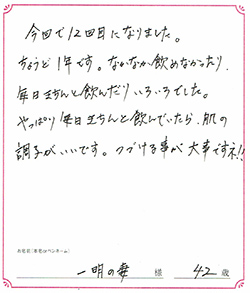 今回で12回目になりました。
ちょうど1年です。なかなか飲めなかったり、
毎日きちんと飲んだりいろいろでした。
やっぱり毎日きちんと飲んでいたら、肌の
調子がいいです。つづける事が大事ですネ!!
お名前(本名orペンネーム)
一明の妻 様 42歳